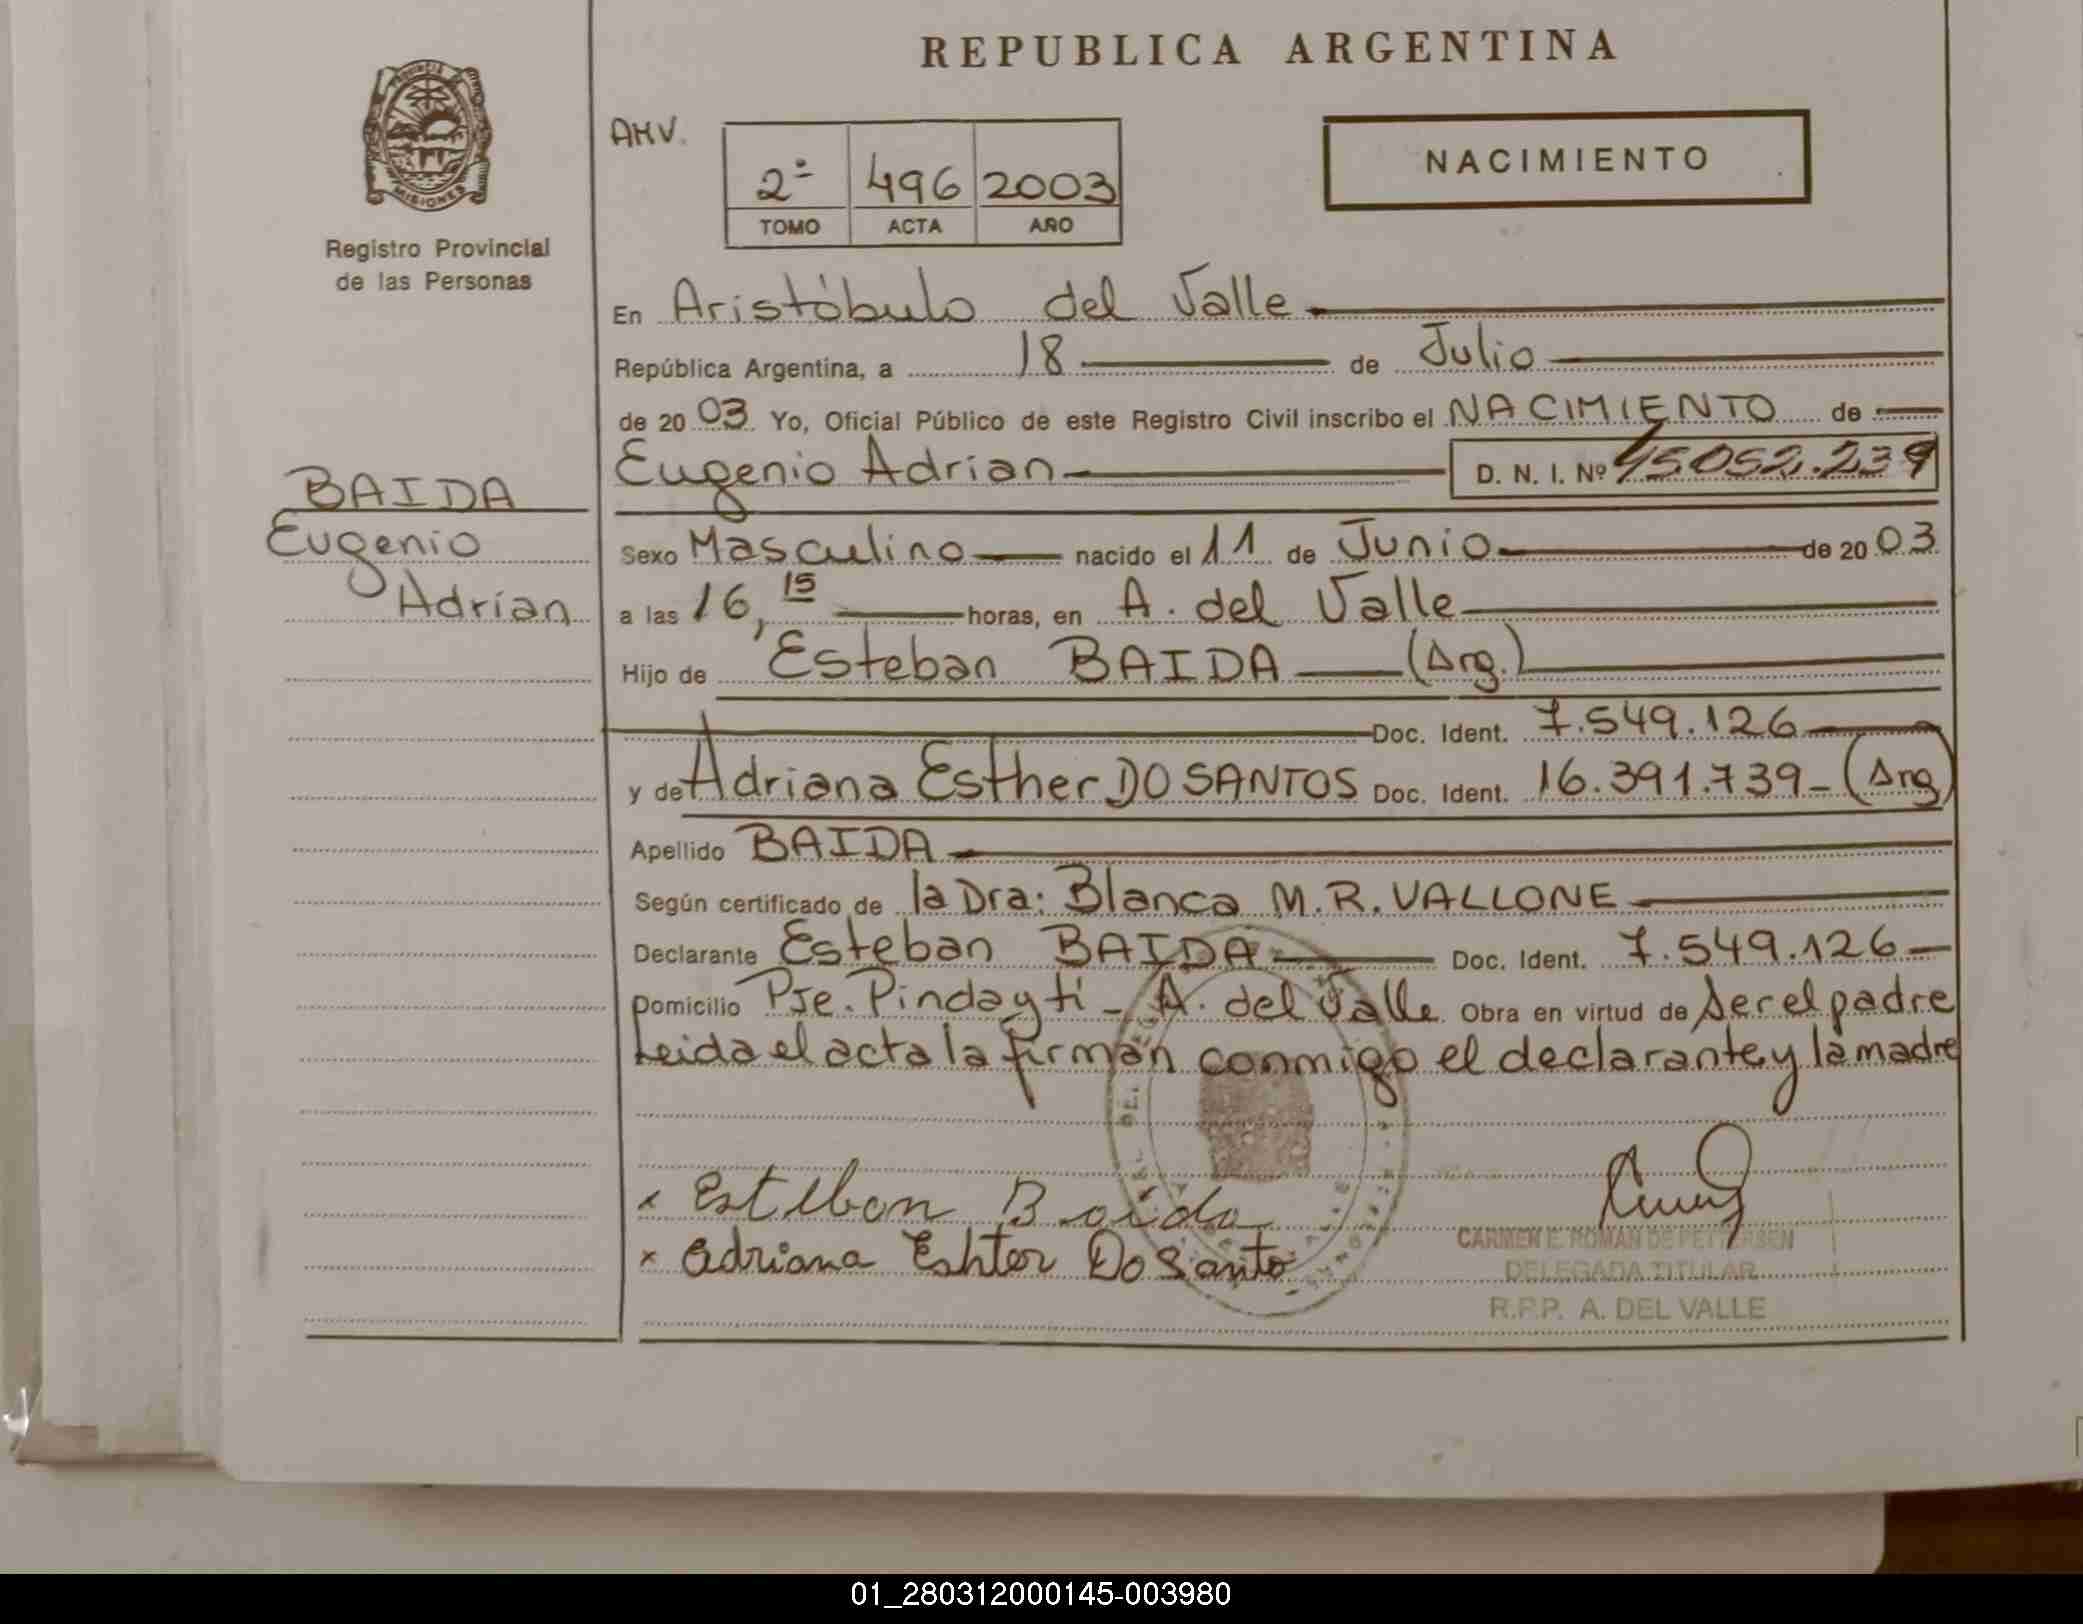 REPUBLICA ARGENTINA
PROVINCIA
MISIONES
Registro Provincial
de las Personas
AMV.
2º 496 2003
TOMO ACTA AÑO
NACIMIENTO
En Aristóbulo del Valle
República Argentina, a 18 de Julio
de 2003 Yo, Oficial Público de este Registro Civil inscribo el NACIMIENTO de
Eugenio Adrian D. N. I. Nº 45.052.239
BAIDA
Eugenio
Adrian
Sexo Masculino nacido el 11 de Junio de 2003
a las 16,15 horas, en A. del Valle
Hijo de Esteban BAIDA (Arg.)
Doc. Ident. 7.549.126
y de Adriana Esther DO SANTOS Doc. Ident. 16.391.739 - (Arg)
Apellido BAIDA
Según certificado de la Dra: Blanca M.R. VALLONE
Declarante Esteban BAIDA Doc. Ident. 7.549.126
Domicilio Pje. Pindayti - A. del Valle Obra en virtud de ser el padre
Leida el acta la firman conmigo el declarante y la madre
x Esteban Baida
x Adriana Eshter Do Santo
CARMEN E. ROMAN DE PETTERSEN
DELEGADA TITULAR
R.P.P. A. DEL VALLE
01_280312000145-003980